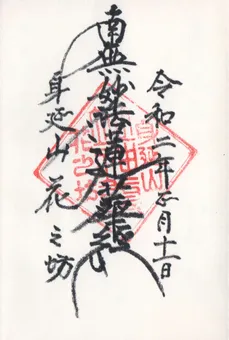 令和二年正月十一日
南無妙法蓮華経
身延山 花之坊